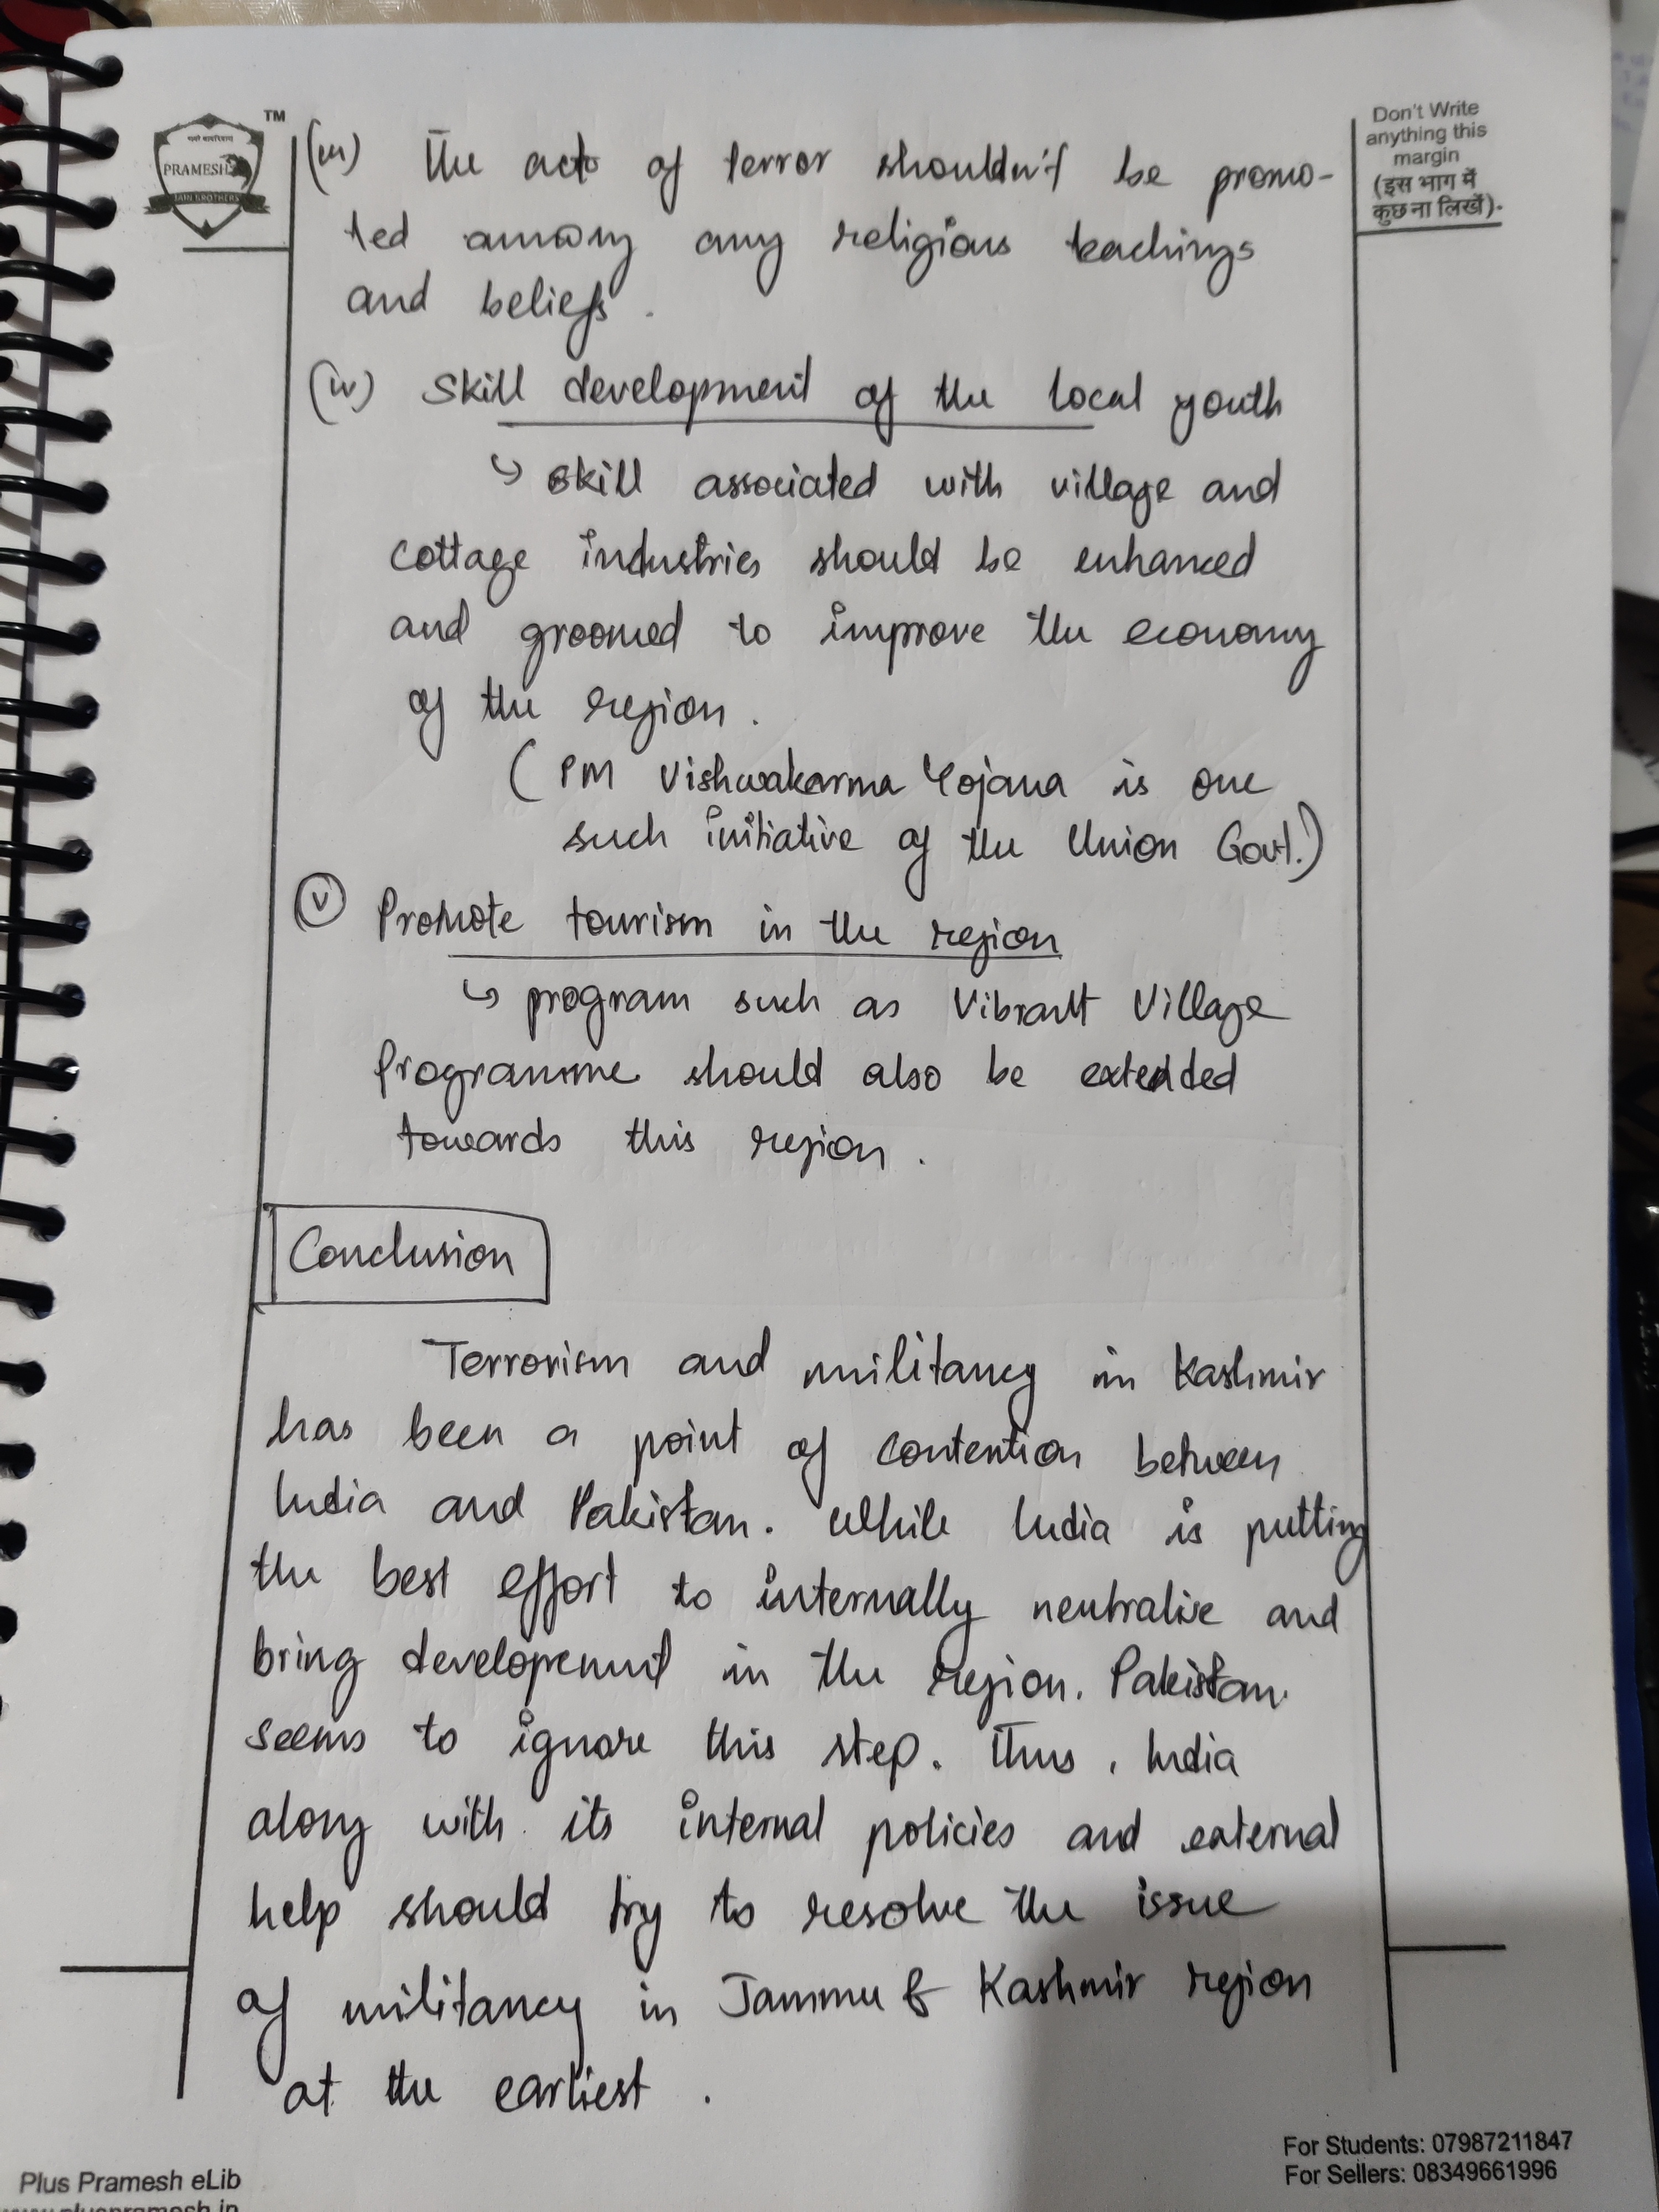 TM
PRAMESH
JAIN BROTHERS
Don't Write
anything this
margin
(इस भाग में
कुछ ना लिखें)
(iii) The acts of terror shouldn't be promo-
ted among any religious teachings
and beliefs.
(iv) Skill development of the local youth
↳ skill associated with village and
cottage industries should be enhanced
and groomed to improve the economy
of the region.
(PM Vishwakarma Yojana is one
such initiative of the Union Govt.)
(v) Promote tourism in the region
↳ program such as Vibrant Village
Programme should also be extended
towards this region.
Conclusion
Terrorism and militancy in Kashmir
has been a point of contention between
India and Pakistan. While India is putting
the best effort to internally neutralise and
bring developement in the region. Pakistan
seems to ignore this step. Thus, India
along with its internal policies and external
help should try to resolve the issue
of militancy in Jammu & Kashmir region
at the earliest.
For Students: 07987211847
For Sellers: 08349661996
Plus Pramesh eLib